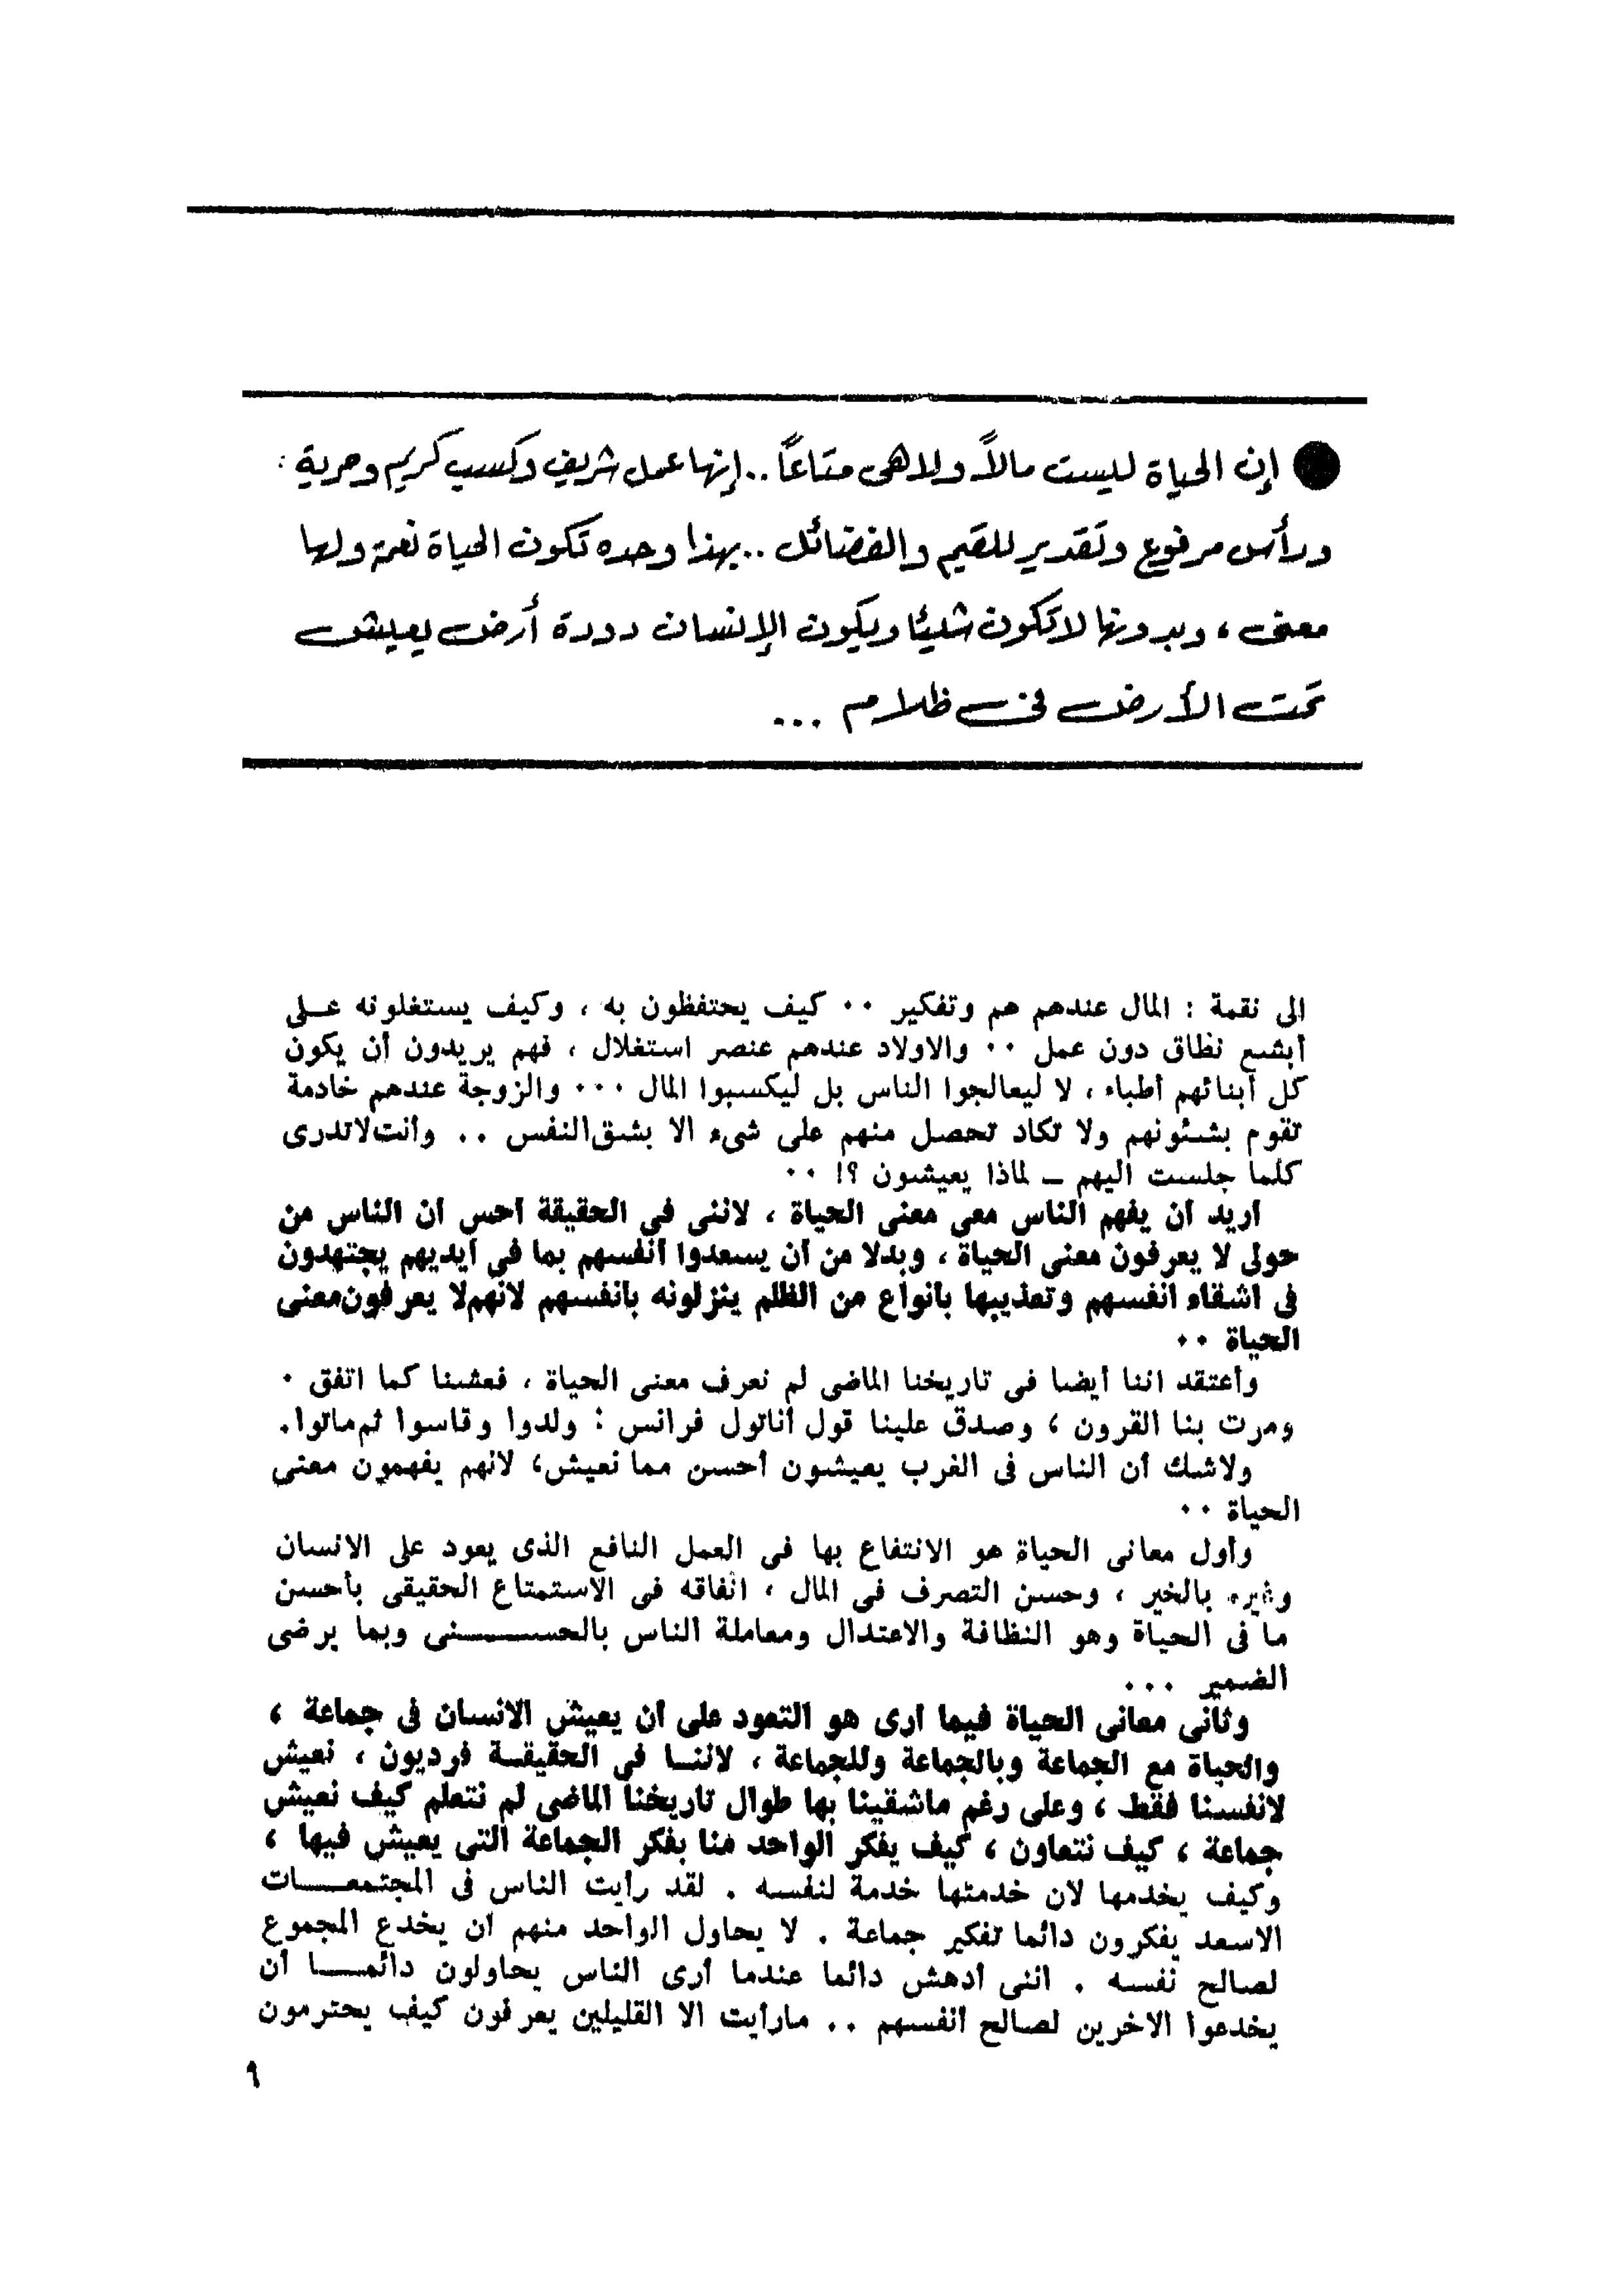 ● إن الحياة ليست مالاً ولا هى متاعاً .. إنها عمل شريف وكسب كريم وحرية :
ورأس مرفوع وتقدير للقيم والفضائل .. بهذا وحده تكون الحياة نعمة ولها
معنى ، وبدونها لا تكون شيئا ويكون الإنسان دودة أرض يعيش
تحت الأرض فى ظلام ...
الى نقمة : المال عندهم هم وتفكير ٠٠ كيف يحتفظون به ، وكيف يستغلونه عـلى
أبشع نطاق دون عمل ٠٠ والاولاد عندهم عنصر استغلال ، فهم يريدون أن يكون
كل أبنائهم أطباء ، لا ليعالجوا الناس بل ليكسبوا المال ٠٠٠ والزوجة عندهم خادمة
تقوم بشئونهم ولا تكاد تحصل منهم على شىء الا بشق النفس .. وأنت لا تدرى
كلما جلست اليهم ــ لماذا يعيشون ؟! ٠٠
أريد أن يفهم الناس معى معنى الحياة ، لاننى فى الحقيقة أحس أن الناس من
حولى لا يعرفون معنى الحياة ، وبدلا من أن يسعدوا أنفسهم بما فى أيديهم يجتهدون
فى اشقاء أنفسهم وتعذيبها بأنواع من الظلم ينزلونه بأنفسهم لانهم لا يعرفون معنى
الحياة ٠٠
وأعتقد اننا أيضا فى تاريخنا الماضى لم نعرف معنى الحياة ، فعشنا كما اتفق ٠
ومرت بنا القرون ، وصدق علينا قول أناتول فرانس : ولدوا وقاسوا ثم ماتوا.
ولاشك أن الناس فى الغرب يعيشون أحسن مما نعيش، لانهم يفهمون معنى
الحياة ٠٠
وأول معانى الحياة هو الانتفاع بها فى العمل النافع الذى يعود على الانسان
وغيره بالخير ، وحسن التصرف فى المال ، انفاقه فى الاستمتاع الحقيقى بأحسن
ما فى الحياة وهو النظافة والاعتدال ومعاملة الناس بالحســـــنى وبما يرضى
الضمير ...
وثانى معانى الحياة فيما أرى هو التعود على أن يعيش الانسان فى جماعة ،
والحياة مع الجماعة وبالجماعة وللجماعة ، لاننـا فى الحقيقـة فرديون ، نعيش
لانفسنا فقط ، وعلى رغم ماشقينا بها طوال تاريخنا الماضى لم نتعلم كيف نعيش
جماعة ، كيف نتعاون ، كيف يفكر الواحد منا بفكر الجماعة التى يعيش فيها ،
وكيف يخدمها لان خدمتها خدمة لنفسه . لقد رأيت الناس فى المجتمعـــات
الاسعد يفكرون دائما تفكير جماعة . لا يحاول الواحد منهم أن يخدع المجموع
لصالح نفسه . اننى أدهش دائما عندما أرى الناس يحاولون دائمـــا أن
يخدعوا الاخرين لصالح أنفسهم .. مارأيت الا القليلين يعرفون كيف يحترمون
٩